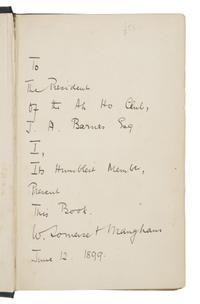 To
The President
of the Ah Ho Club,
J. A. Barnes Esq
I,
Its Humblest Member,
Present
This Book.
W. Somerset Maugham
June 12. 1899.